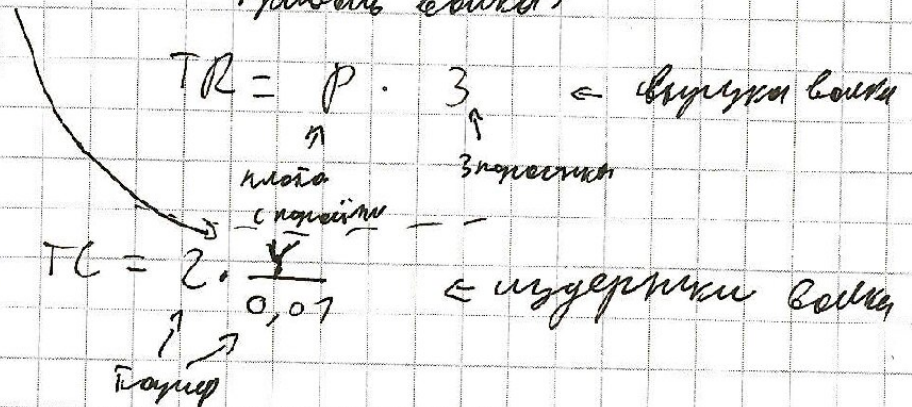 TR = P · 3 ← выручка волка
плата 3 поросёнка
с поросёнка
TC = 2 · Y / 0,01 ← издержки волка
Тариф